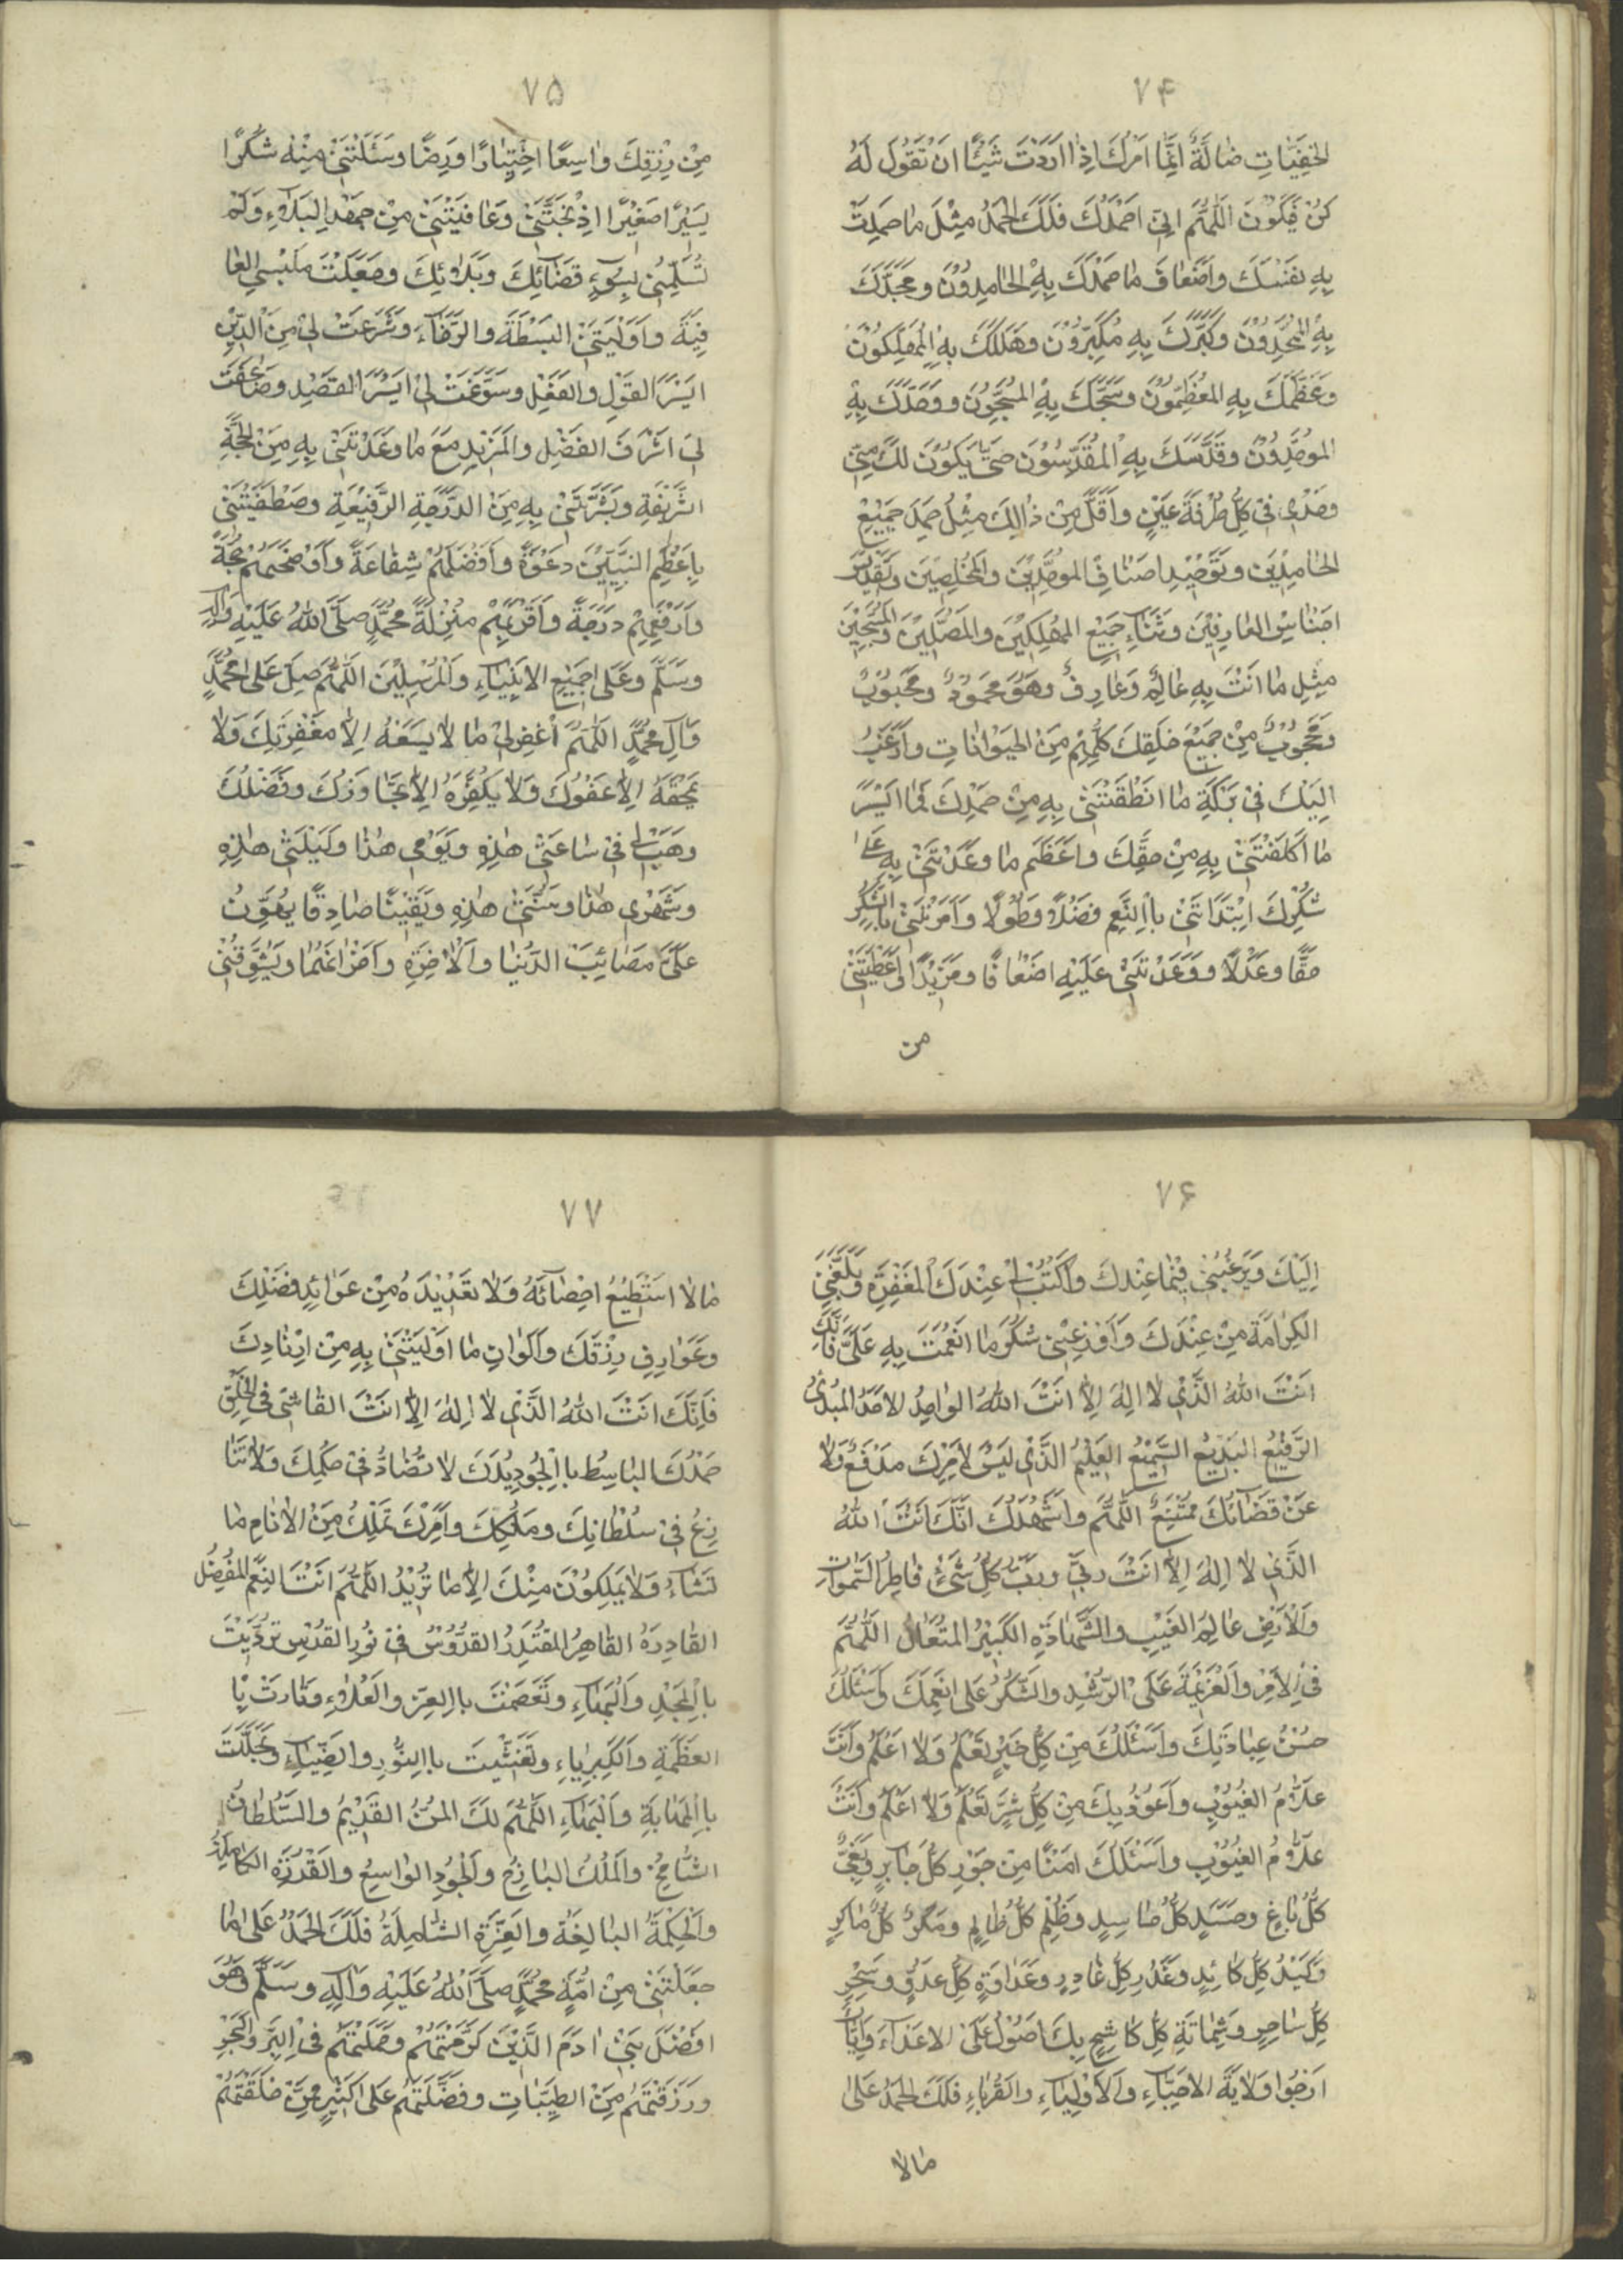 ٧۴
الخَفِيَّاتِ ضَالَّةٌ اِنَّمَا اَمْرُكَ اِذَا اَرَدْتَ شَيْئًا اَنْ تَقُوْلَ لَهُ
كُنْ فَيَكُوْنَ اَللّٰهُمَّ اِنِّى اَحْمَدُكَ فَلَكَ الحَمْدُ مِثْلَ مَا حَمِدْتَ
بِهِ نَفْسَكَ وَاَضْعَافَ مَا حَمِدَكَ بِهِ الحَامِدُوْنَ وَمَجَّدَكَ
بِهِ المُمَجِّدُوْنَ وَكَبَّرَكَ بِهِ مُكَبِّرُوْنَ وَهَلَّلَكَ بِهِ المُهَلِّلُوْنَ
وَعَظَّمَكَ بِهِ المُعَظِّمُوْنَ وَسَبَّحَكَ بِهِ المُسَبِّحُوْنَ وَوَحَّدَكَ بِهِ
المُوَحِّدُوْنَ وَقَدَّسَكَ بِهِ المُقَدِّسُوْنَ حَتّٰى يَكُوْنَ لَكَ مِنِّى
وَحْدِى فِىْ كُلِّ طَرْفَةِ عَيْنٍ وَاَقَلَّ مِنْ ذَالِكَ مِثْلُ حَمْدِ جَمِيْعِ
الحَامِدِيْنَ وَتَوْحِيْدِ اَصْنَافِ المُوَحِّدِيْنَ وَالمُخْلِصِيْنَ وَتَقْدِيْسِ
اَجْنَاسِ العَارِفِيْنَ وَثَنَاءِ جَمِيْعِ المُهَلِّلِيْنَ وَالمُصَلِّيْنَ وَالمُسَبِّحِيْنَ
مِثْلِ مَا اَنْتَ بِهِ عَالِمٌ وَعَارِفٌ وَهُوَ مَحْمُوْدٌ وَمَحْبُوْبٌ
وَمَحْجُوْبٌ مِنْ جَمِيْعِ خَلْقِكَ كُلِّهِمْ مِنَ الحَيْوَانَاتِ وَاَرْغَبُ
اِلَيْكَ فِىْ بَرَكَةِ مَا اَنْطَقْتَنِىْ بِهِ مِنْ حَمْدِكَ فَمَا اَيْسَرَ
مَا كَلَّفْتَنِىْ بِهِ مِنْ حَقِّكَ وَاَعْظَمَ مَا وَعَدْتَنِىْ بِهِ عَلٰى
شُكْرِكَ اِبْتَدَاْتَنِىْ بِاالنِّعَمِ فَضْلًا وَطَوْلًا وَاَمَرْتَنِىْ بِاالشُّكْرِ
حَقًّا وَعَدْلًا وَوَعَدْتَنِىْ عَلَيْهِ اَضْعَافًا وَمَزِيْدًا اَعْطَيْتَنِىْ
من
٧۵
مِنْ رِزْقِكَ وَاسِعًا اِخْتِيَارًا وَرِضًا وَسَئَلْتَنِىْ مِنْهُ شُكْرًا
يَسِيْرًا صَغِيْرًا اِذْ نَجَّيْتَنِىْ وَعَافَيْتَنِىْ مِنْ جَهْدِ البَلَاءِ وَلَمْ
تُسْلِمْنِىْ لِسُوْءِ قَضَائِكَ وَبَلَائِكَ وَجَعَلْتَ مَلْبَسِىَ العَا
فِيَةَ وَاَوْلَيْتَنِىْ البَسْطَةَ وَالرَّخَاءَ وَشَرَعْتَ لِىْ مِنَ الدِّيْنِ
اَيْسَرَ القَوْلِ وَالفِعْلِ وَسَوَّغْتَ لِىْ اَيْسَرَ القَصْدِ وَضَاعَفْتَ
لِىَ اَشْرَفَ الفَضْلِ وَالمَزِيْدِ مَعَ مَا وَعَدْتَنِىْ بِهِ مِنَ المَحَجَّةِ
الشَّرِيْفَةِ وَبَشَّرْتَنِىْ بِهِ مِنَ الدَّرَجَةِ الرَّفِيْعَةِ وَصْطَفَيْتَنِىْ
بِاَعْظَمِ النَّبِيِّيْنَ دَعْوَةً وَاَفْضَلِهِمْ شِفَاعَةً وَاَوْضَحِهِمْ حُجَّةً
وَاَرْفَعِهِمْ دَرَجَةً وَاَقْرَبِهِمْ مَنْزِلَةً مُحَمَّدٍ صَلَّى اللّٰهُ عَلَيْهِ وَآلِهِ
وَسَلَّمَ وَعَلٰى جَمِيْعِ الاَنْبِيَاءِ وَالْمُرْسَلِيْنَ اَللّٰهُمَّ صَلِّ عَلٰى مُحَمَّدٍ
وَآلِ مُحَمَّدٍ اَللّٰهُمَّ اَغْفِرْلِىْ مَا لَا يَسَعُهُ اِلَّا مَغْفِرَتُكَ وَلَا
يَمْحَقُهُ اِلَّا عَفْوُكَ وَلَا يُكَفِّرُهُ اِلَّا تَجَاوُزُكَ وَفَضْلُكَ
وَهَبْ لِىْ فِىْ سَاعَتِىْ هٰذِهِ وَيَوْمِى هٰذَا وَلَيْلَتِىْ هٰذِهِ
وَشَهْرِى هٰذَا وَسَنَتِىْ هٰذِهِ وَيَقِيْنًا صَادِقًا يُهَوِّنُ
عَلَىَّ مَصَائِبَ الدُّنْيَا وَالْاٰخِرَةِ وَاَحْزَانَهُمَا وَيُشَوِّقُنِىْ
٧۶
اِلَيْكَ وَيُرَغِّبُنِىْ فِيْمَا عِنْدَكَ وَاكْتُبْ لِىْ عِنْدَكَ الْمَغْفِرَةَ وَبَلِّغْنِىَ
الكَرَامَةَ مِنْ عِنْدِكَ وَاَوْزِعْنِىْ شُكْرَ مَا اَنْعَمْتَ بِهِ عَلَىَّ فَاِنَّكَ
اَنْتَ اللّٰهُ الَّذِىْ لَا اِلٰهَ اِلَّا اَنْتَ اللّٰهُ الوَاحِدُ الاَحَدُ المُبْدِئُ
الرَّفِيْعُ البَدِيْعُ السَّمِيْعُ العَلِيْمُ الَّذِىْ لَيْسَ لِاَمْرِكَ مَدْفَعٌ وَلَا
عَنْ قَضَائِكَ مُمْتَنِعٌ اَللّٰهُمَّ وَاَشْهَدُ اَنَّكَ اَنْتَ اللّٰهُ
الَّذِىْ لَا اِلٰهَ اِلَّا اَنْتَ رَبِّى وَرَبُّ كُلِّ شَىْءٍ فَاطِرُ السَّمٰوَاتِ
وَالْاَرْضِ عَالِمُ الغَيْبِ وَالشَّهَادَةِ الكَبِيْرُ المُتَعَالُ اَللّٰهُمَّ
فِى الاَمْرِ وَالْعَزِيْمَةَ عَلَى الرُّشْدِ وَالشُّكْرَ عَلٰى نِعَمِكَ وَاَسْئَلُكَ
حُسْنَ عِبَادَتِكَ وَاَسْئَلُكَ مِنْ كُلِّ خَيْرٍ تَعْلَمُ وَلَا اَعْلَمُ وَاَنْتَ
عَلَّامُ الغُيُوْبِ وَاَعُوْذُ بِكَ مِنْ كُلِّ شَرٍّ تَعْلَمُ وَلَا اَعْلَمُ وَاَنْتَ
عَلَّامُ الغُيُوْبِ وَاَسْئَلُكَ اَمْنًا مِنْ جَوْرِ كُلِّ جَابِرٍ وَبَغْىِ
كُلِّ بَاغٍ وَحَسَدِ كُلِّ حَاسِدٍ وَظُلْمِ كُلِّ ظَالِمٍ وَمَكْرِ كُلِّ مَاكِرٍ
وَكَيْدِ كُلِّ كَائِدٍ وَغَدْرِ كُلِّ غَادِرٍ وَعَدَاوَةِ كُلِّ عَدُوٍّ وَسِحْرِ
كُلِّ سَاحِرٍ وَشِمَاتَةِ كُلِّ كَاشِحٍ بِكَ اَصُوْلُ عَلَى الاَعْدَاءِ وَاِيَّاكَ
اَرْجُوْا وَلَايَةَ الاَحِبَّاءِ وَالاَوْلِيَاءِ وَالقُرْبَاءِ فَلَكَ الحَمْدُ عَلٰى
مالا
٧٧
مَا لَا اَسْتَطِيْعُ اِحْصَائَهُ وَلَا تَعْدِيْدَهُ مِنْ عَوَائِدِ فَضْلِكَ
وَعَوَارِفِ رِزْقِكَ وَاَلْوَانِ مَا اَوْلَيْتَنِىْ بِهِ مِنْ اِرْفَادِكَ
فَاِنَّكَ اَنْتَ اللّٰهُ الَّذِىْ لَا اِلٰهَ اِلَّا اَنْتَ الفَاشِىْ فِى الخَلْقِ
حَمْدُكَ البَاسِطُ بِاالْجُوْدِ يَدُكَ لَا تُضَادُّ فِىْ حُكْمِكَ وَلَا تُنَا
زَعُ فِىْ سُلْطَانِكَ وَمُلْكِكَ وَاَمْرِكَ تَمْلِكُ مِنَ الاَنَامِ مَا
تَشَاءُ وَلَا يَمْلِكُوْنَ مِنْكَ اِلَّا مَا تُرِيْدُ اَللّٰهُمَّ اَنْتَ المُنْعِمُ المُفْضِلُ
القَادِرُ القَاهِرُ المُقْتَدِرُ القُدُّوْسُ فِىْ نُوْرِ القُدْسِ تَرَدَّيْتَ
بِاالْمَجْدِ وَالْبَهَاءِ وَتَعَظَّمْتَ بِاالعِزِّ وَالعَلَاءِ وَتَازَرْتَ بِا
العَظَمَةِ وَالكِبْرِيَاءِ وَتَغَشَّيْتَ بِاالنُّوْرِ وَالضِّيَاءِ وَتَجَلَّلْتَ
بِاالْمَهَابَةِ وَالْبَهَاءِ اَللّٰهُمَّ لَكَ المَنُّ القَدِيْمُ وَالسُّلْطَانُ
الشَّامِخُ وَالْمُلْكُ البَاذِخُ وَالْجُوْدُ الوَاسِعُ وَالقُدْرَةُ الكَامِلَةُ
وَالْحِكْمَةُ البَالِغَةُ وَالعِزَّةُ الشَّامِلَةُ فَلَكَ الحَمْدُ عَلٰى مَا
جَعَلْتَنِىْ مِنْ اُمَّةِ مُحَمَّدٍ صَلَّى اللّٰهُ عَلَيْهِ وَآلِهِ وَسَلَّمَ وَهُوَ
اَفْضَلُ بَنِىْ اٰدَمَ الَّذِيْنَ كَرَّمْتَهُمْ وَحَمَلْتَهُمْ فِى البَرِّ وَالبَحْرِ
وَرَزَقْتَهُمْ مِنَ الطَّيِّبَاتِ وَفَضَّلْتَهُمْ عَلٰى كَثِيْرٍ مِمَّنْ خَلَقْتَهُمْ